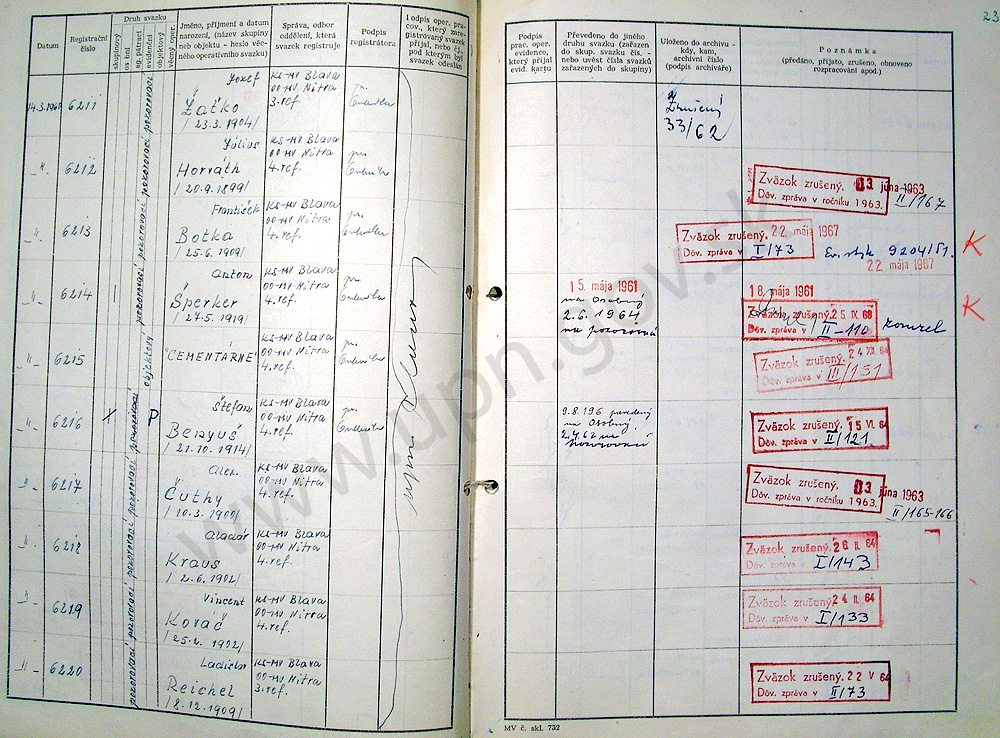 23
Datum
Registrační
číslo
Druh svazku
skupinový
os ení
ag. pátrací
evidenční
objektový
věcný oper.
Jméno, příjmení a datum
narození, (název skupiny
neb objektu - heslo věc-
ného operativního svazku)
Správa, odbor
oddělení, která
svazek registruje
Podpis
registrátora
Podpis oper. pra-
cov., který zare-
gistrovaný svazek
přijal, nebo čj.,
pod kterým byl
svazek odeslán
Podpis
prac. oper.
evidence,
který přijal
evid. kartu
Převedeno do jiného
druhu svazku (zařazen
do skup. svazku čís. -
nebo uvést čísla svazků
zařazených do skupiny)
Uloženo do archivu -
kdy, kam,
archivní číslo
(podpis archiváře)
Poznámka
(předáno, přijato, zrušeno, obnoveno
rozpracování apod.)
14.3.1960 6211
pozorovací
Jozef
Žaťko
/ 23.3. 1904/
KS-MV Blava
OO-MV Nitra
3. ref.
Zrušený
33/62
-"- 6212
pozorovací
Július
Horváth
/ 20.9. 1899/
KS-MV Blava
OO-MV Nitra
4. ref.
Zväzok zrušený. 03 júna 1963
Dôv. zpráva v ročníku 1963. II/167
-"- 6213
pozorovací
František
Botka
/ 25.6. 1909/
KS-MV Blava
OO-MV Nitra
4. ref.
Zväzok zrušený. 22 mája 1967
Dôv. zpráva v I/73
9204/51. K
22 mája 1967
-"- 6214
pozorovací
Anton
Šperker
/ 27.5. 1919/
KS-MV Blava
OO-MV Nitra
4. ref.
15. mája 1961
na Osobný
2.6. 1964
na pozorovací
18. mája 1961
Zväzok zrušený. 25 IX. 68
Dôv. zpráva v II-110
K
-"- 6215
objektový
"CEMENTÁRNE"
KS-MV Blava
OO-MV Nitra
4. ref.
Zväzok zrušený. 24 XII. 64
Dôv. zpráva v III/151
-"- 6216 X P
pozorovací
Štefan
Benyuš
/ 21.10. 1914/
KS-MV Blava
OO-MV Nitra
4. ref.
9.8. 196 prevedený
na Osobný.
na pozorovací
Zväzok zrušený. 15 VI. 64
Dôv. zpráva v II/121
-"- 6217
pozorovací
Alex.
Čuthy
/ 10.3. 1900/
KS-MV Blava
OO-MV Nitra
4. ref.
Zväzok zrušený. 03 júna 1963
Dôv. zpráva v ročníku 1963.
II/165-166
-"- 6218
pozorovací
Aladár
Kraus
/ 2.6. 1902/
KS-MV Blava
OO-MV Nitra
4. ref.
Zväzok zrušený. 26 II. 64
Dôv. zpráva v I/143
-"- 6219
pozorovací
Vincent
Kováč
KS-MV Blava
OO-MV Nitra
4. ref.
Zväzok zrušený. 24 II. 64
Dôv. zpráva v I/133
-"- 6220
pozorovací
Ladislav
Reichel
/ 8.12. 1909/
KS-MV Blava
OO-MV Nitra
3. ref.
Zväzok zrušený. 22 V 64
Dôv. zpráva v II/73
MV č. skl. 752
www.upn.gov.sk